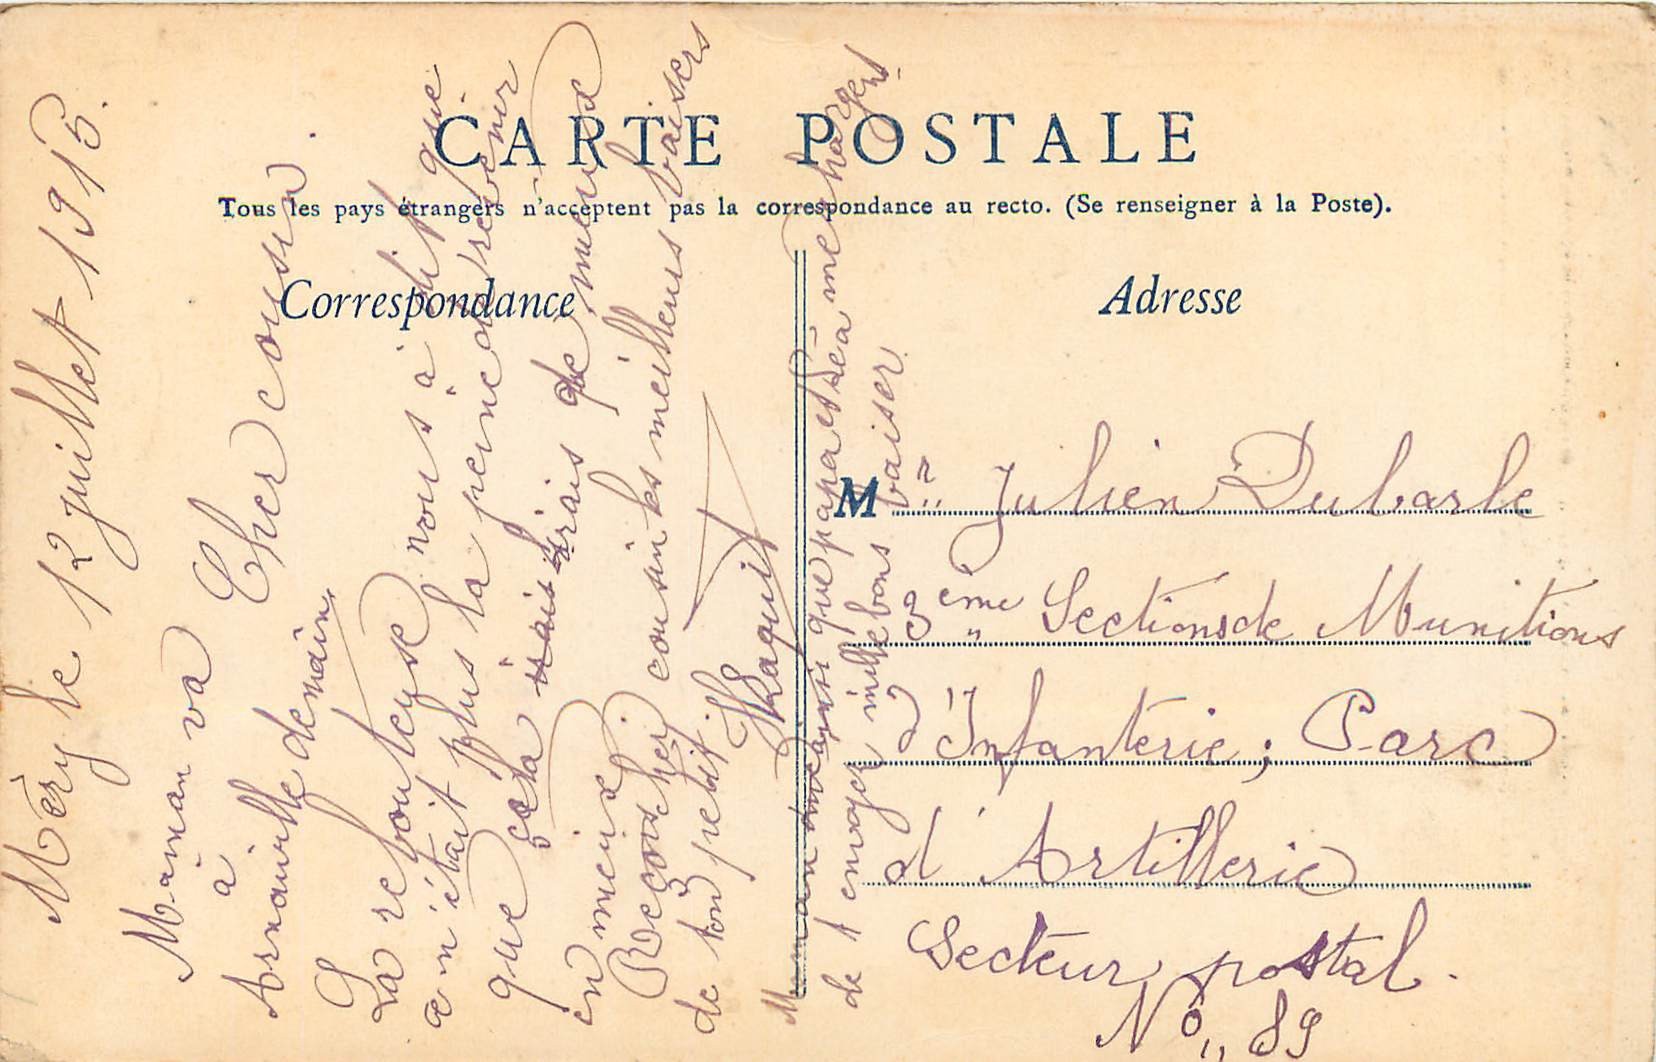 CARTE POSTALE
Tous les pays étrangers n'acceptent pas la correspondance au recto. (Se renseigner à la Poste).
Correspondance
Adresse
Méry le 12 juillet 1915.
Maman va
à
Arnouville demain.
Cher cousin.
La rebouteuse nous à dit que
ce n'était plus la peine d'revenir
que cela irais de mieux
en mieux
Reçois cher cousin les meilleurs baisers
de ton petit
Maman ainsi que papa et Léa me charge
de t'envoyer mille bons baiser.
M r Julien Dubarle
3eme Sections de Munitions
d'Infanterie; Parc
d'Artillerie
Secteur postal.
No 89